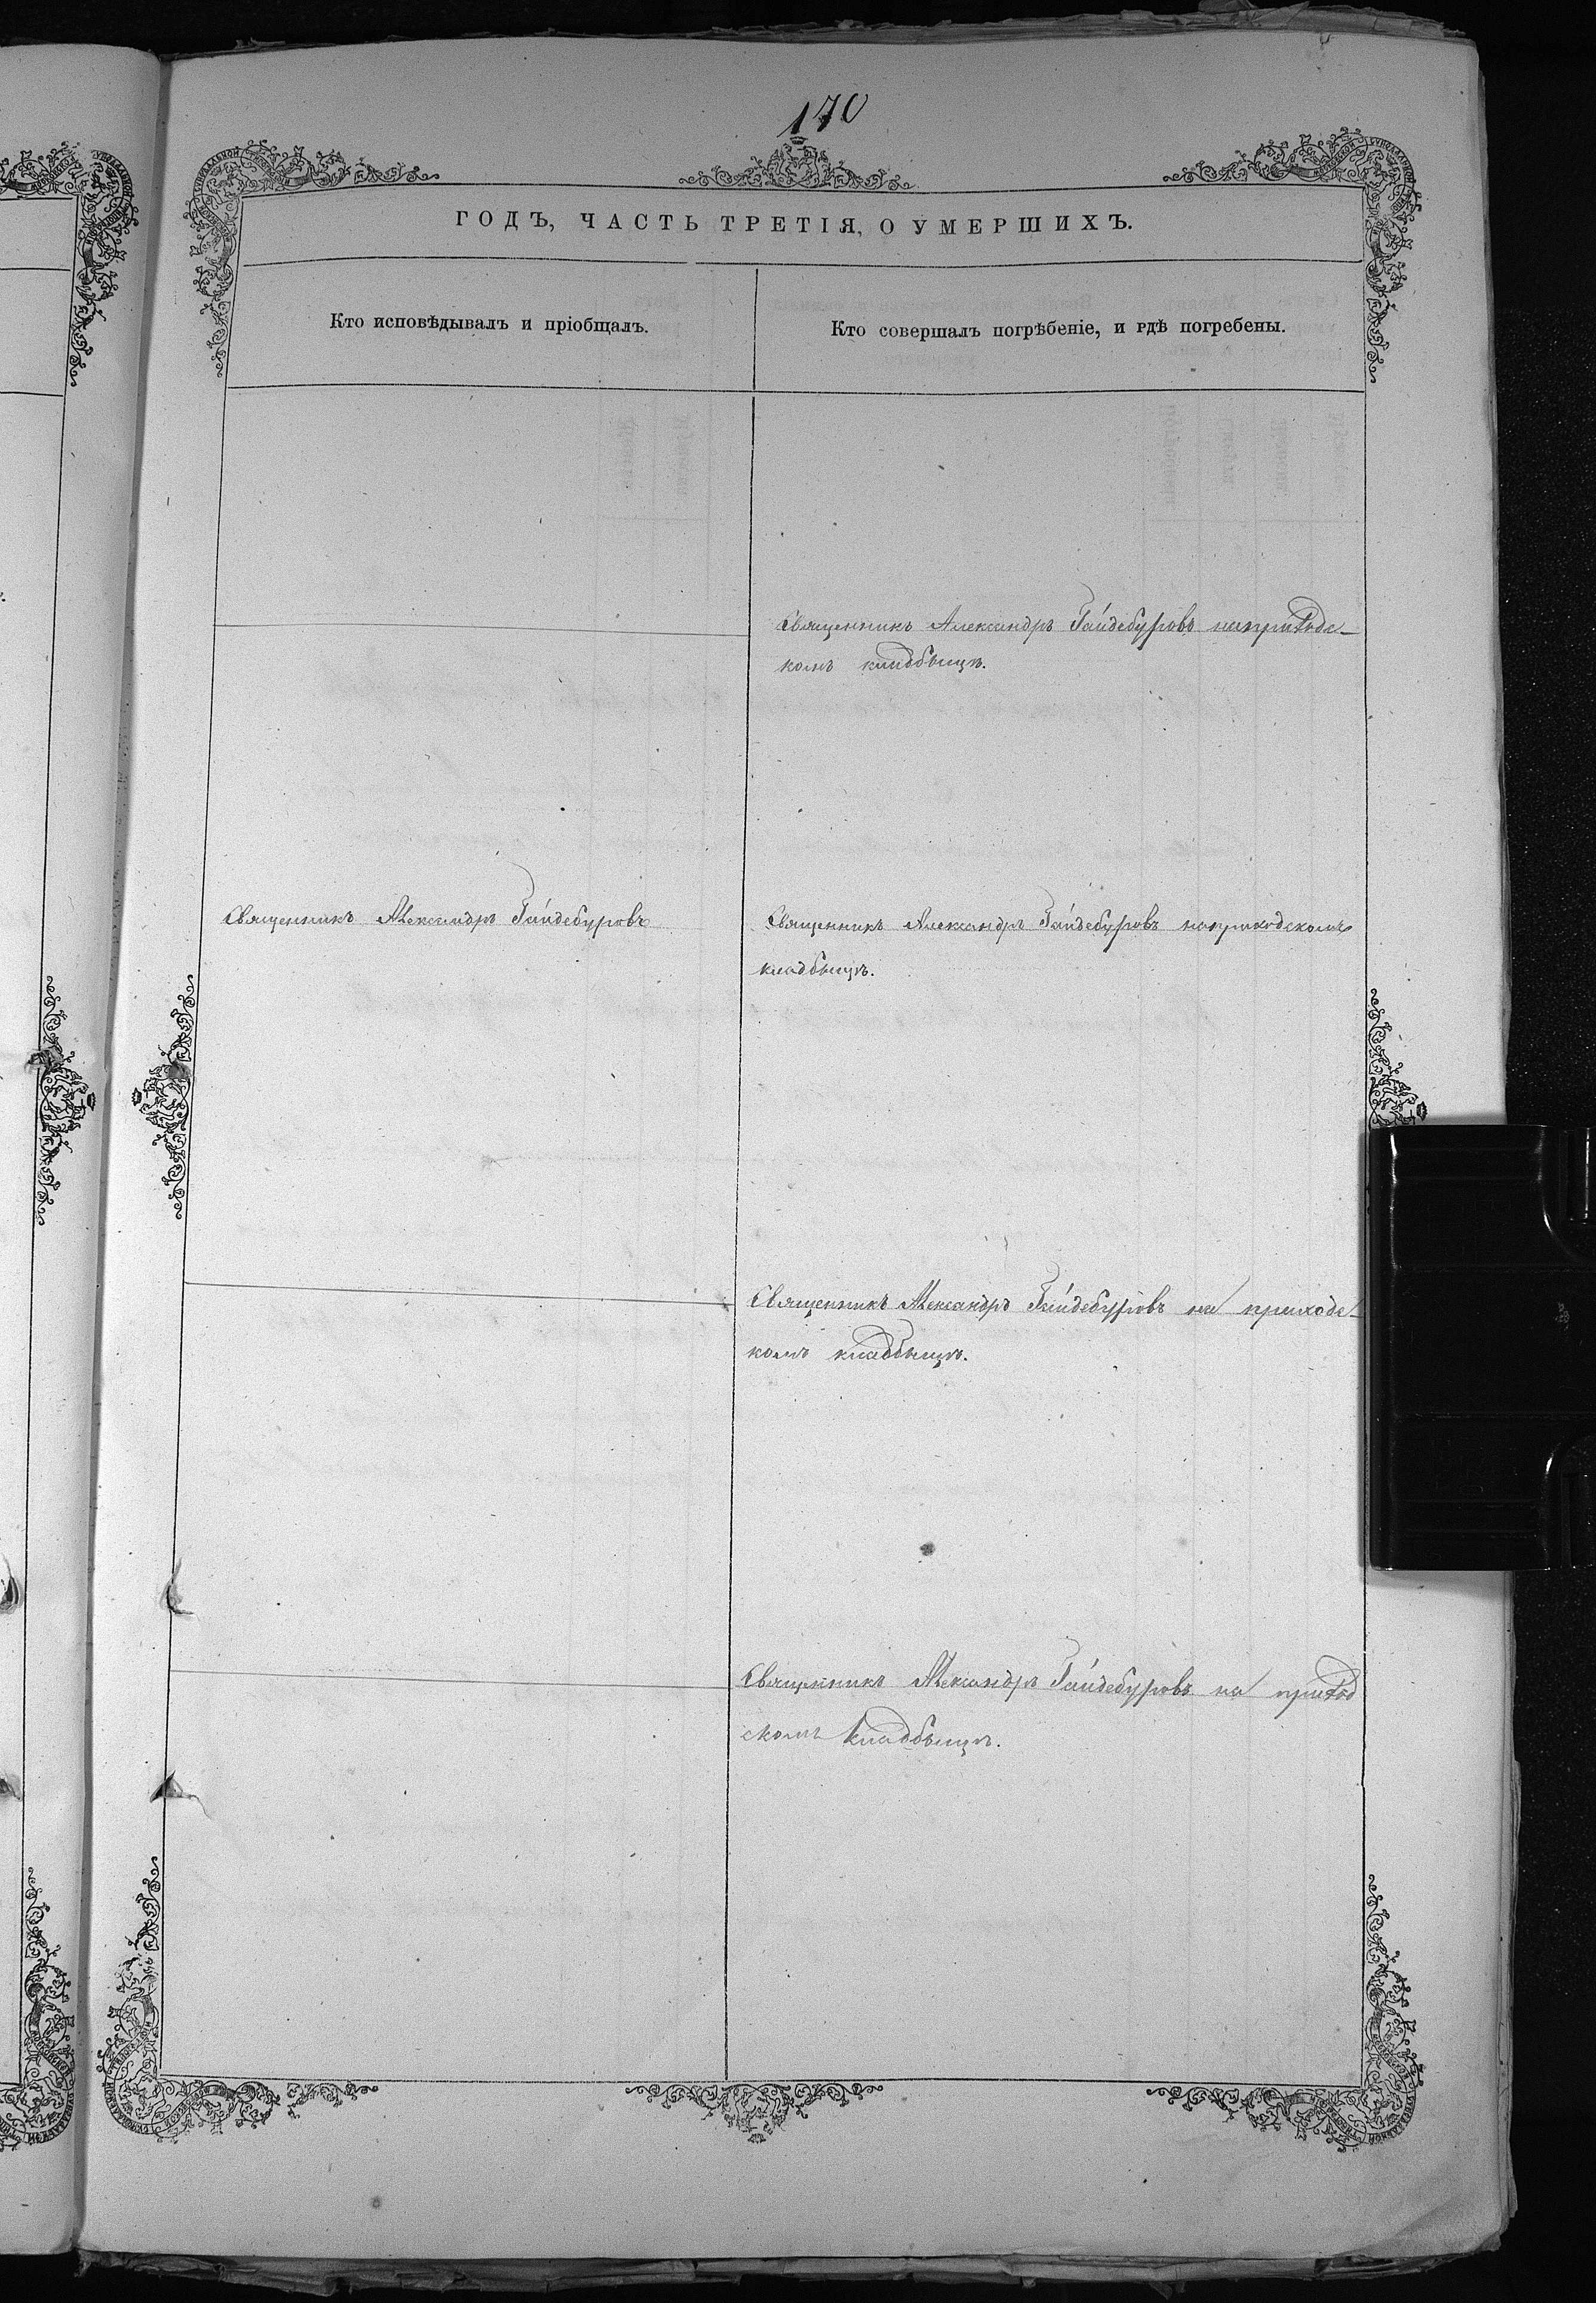 170
ГОДЪ, ЧАСТЬ ТРЕТІЯ, О УМЕРШИХЪ.
Кто исповѣдывалъ и пріобщалъ.
Кто совершалъ погрѣбеніе, и гдѣ погребены.
Священникъ Александръ Гайдебуровъ на приходс-
комъ кладбыщѣ.
Священникъ Александръ Гайдебуровъ
Священникъ Александръ Гайдебуровъ на приходскомъ
кладбыщѣ.
Священникъ Александръ Гайдебуровъ на приходс-
комъ кладбыщѣ.
Священникъ Александръ Гайдебуровъ на приход
скомъ кладбыщѣ.